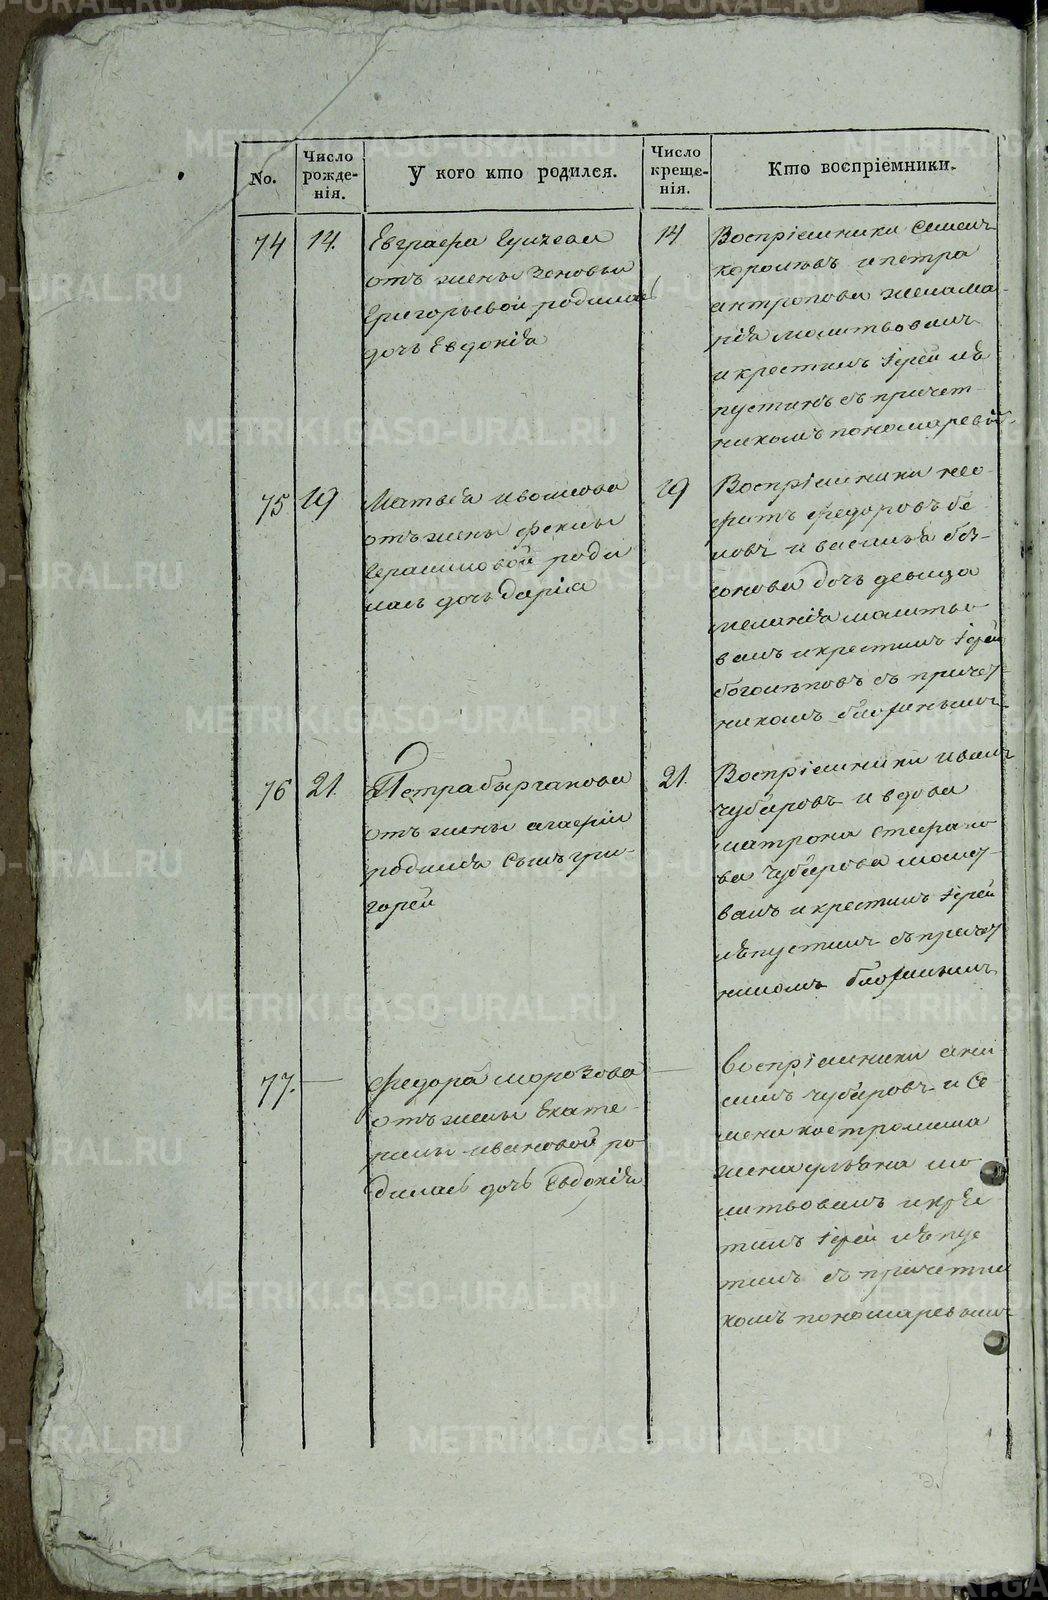 No.
Число рожде-нія.
У кого кто родился.
Число креще-нія.
Кто воспріемники.
74
14.
Евграфа
отъ жены Зеновьи
Григорьевой родилась
дочь Евдокіа
14
Воспріемники Семенъ
и Петра
Антропова жена Ма-
ріа молитвовалъ
и крестилъ Іерей Лѣ
пустинъ съ причет
никомъ Пономаревы
75
19
Матвѣа Ивонтова
отъ жены Феклы
Герасимовой роди
лась дочь Даріа
19
Воспріемники Нео-
фитъ Федоровъ Бе
ловъ и Василья
дочь девица
Меланіа молитво
валъ и крестилъ Іерей
Боголѣповъ съ причет
никомъ
76
21.
Петра
отъ жены Агафіи
родился сынъ Гри-
горей
21.
Воспріемники Иванъ
Чубаровъ и вдова
Матрона Стефано
ва Чубарова молит
валъ и крестилъ Іерей
Лѣпустинъ съ причет
никомъ
77.
—
Федора Морозова
отъ жены Екате-
рины Ивановой ро
дилась дочь Евдокіа
—
Воспріемники Ани
симъ Чубаровъ и Се
мена Костромина
жена Ульана мо
литвовалъ и крес
тилъ Іерей Лѣпус
тинъ съ причетни
комъ Пономаревымъ
METRIKI.GASO-URAL.RU